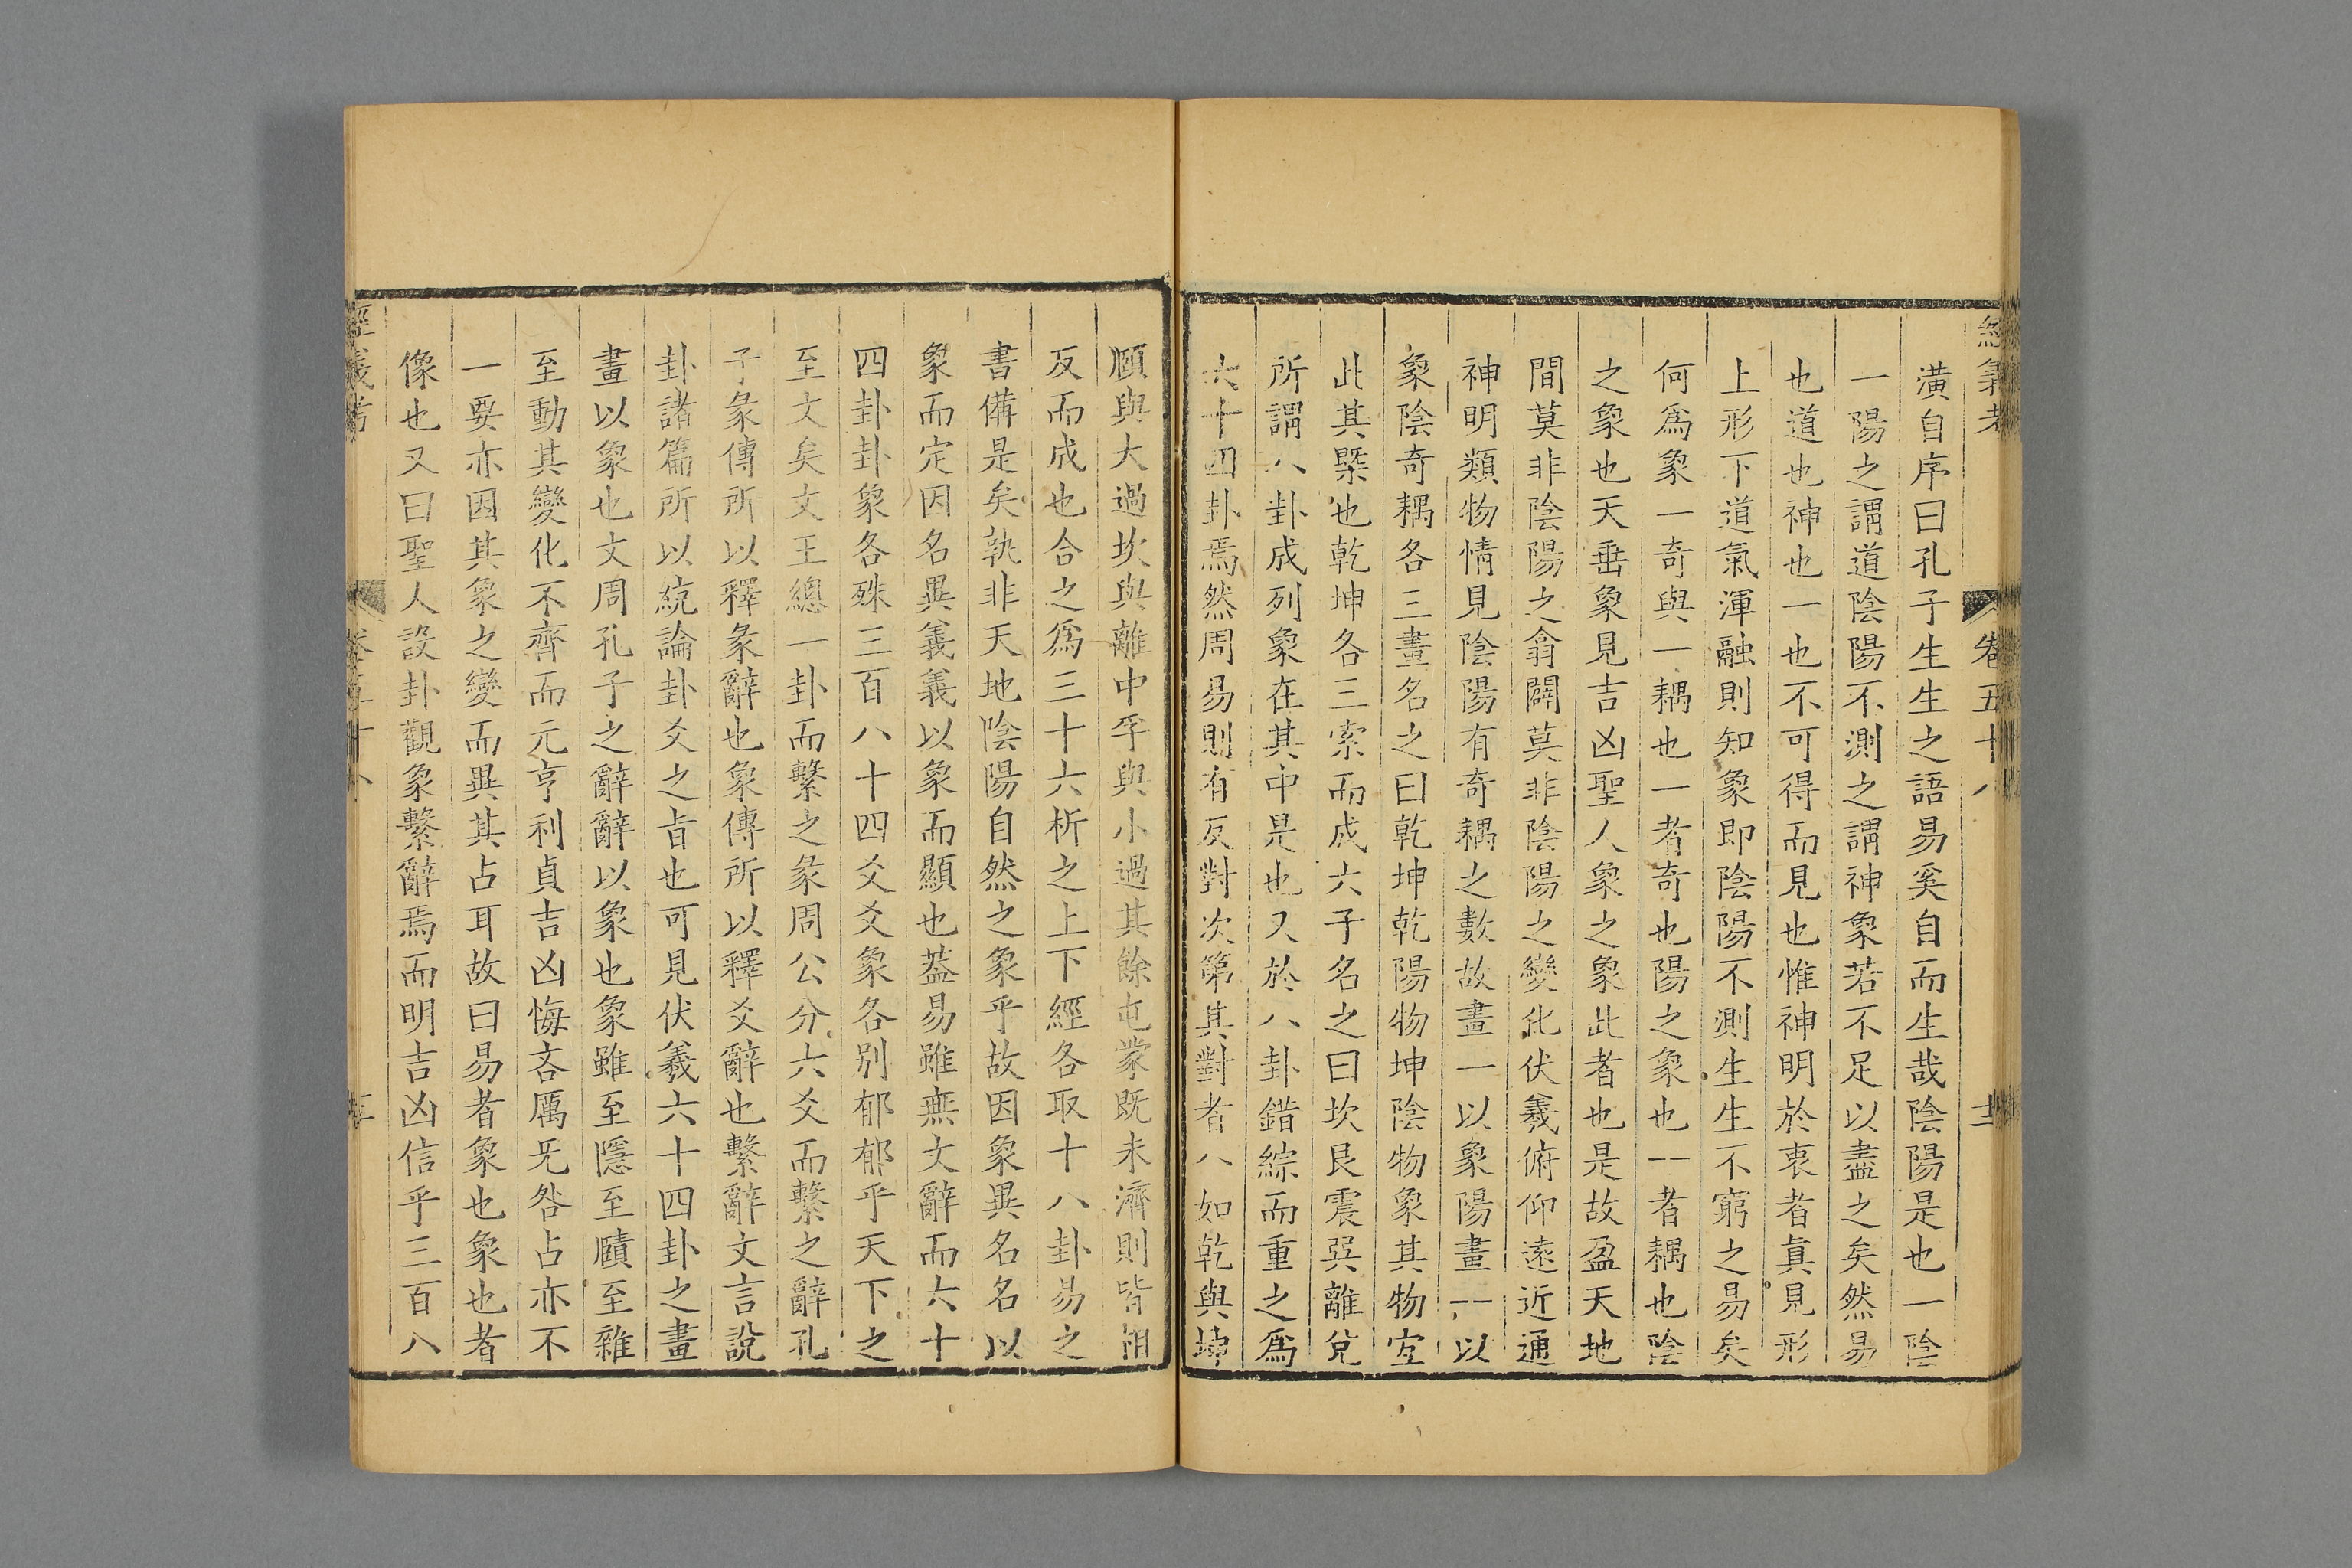 經義考 卷五十八 十二
潢自序曰孔子生生之語易奚自而生哉陰陽是也一陰
一陽之謂道陰陽不測之謂神象若不足以盡之矣然易
也道也神也一也不可得而見也惟神明於衷者眞見形
上形下道氣渾融則知象即陰陽不測生生不窮之易矣
何爲象一奇與一耦也一者奇也陽之象也⚋者耦也陰
之象也天垂象見吉凶聖人象之象此者也是故盈天地
間莫非陰陽之翕闢莫非陰陽之變化伏羲俯仰遠近通
神明類物情見陰陽有奇耦之數故畫一以象陽畫⚋以
象陰奇耦各三畫名之曰乾坤乾陽物坤陰物象其物宜
此其槩也乾坤各三索而成六子名之曰坎艮震巽離兌
所謂八卦成列象在其中是也又於八卦錯綜而重之爲
六十四卦焉然周易則有反對次第其對者八如乾與坤
頤與大過坎與離中孚與小過其餘屯蒙既未濟則皆相
反而成也合之爲三十六析之上下經各取十八卦易之
書備是矣孰非天地陰陽自然之象乎故因象異名名以
象而定因名異義義以象而顯也葢易雖無文辭而六十
四卦卦象各殊三百八十四爻爻象各别郁郁乎天下之
至文矣文王總一卦而繫之彖周公分六爻而繫之辭孔
子彖傳所以釋彖辭也象傳所以釋爻辭也繫辭文言說
卦諸篇所以統論卦爻之旨也可見伏羲六十四卦之畫
畫以象也文周孔子之辭辭以象也象雖至隱至賾至雜
至動其變化不齊而元亨利貞吉凶悔吝厲无咎占亦不
一要亦因其象之變而異其占耳故曰易者象也象也者
像也又曰聖人設卦觀象繫辭焉而明吉凶信乎三百八
經義考 卷五十八